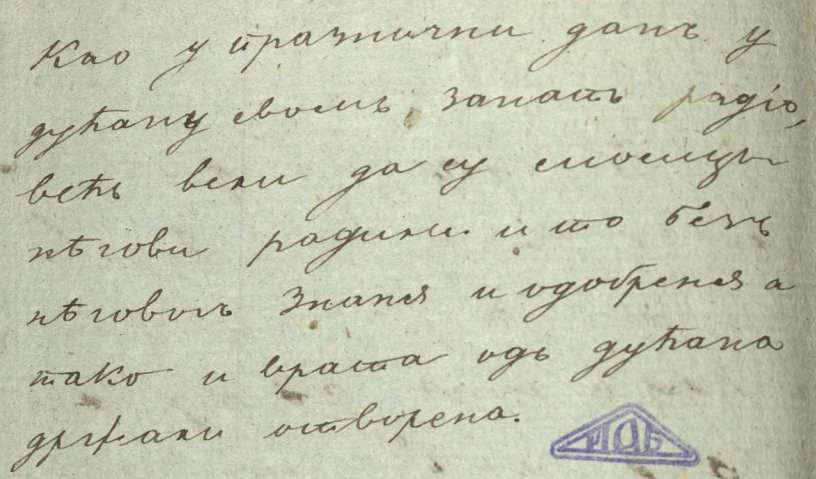 Као у празнични данъ у
дућану своемъ, занатъ радіо,
већъ вели да су
нѣгови радили и то безъ
нѣговогъ знаня и одобреня а
тако и врата одъ дућана
држали отворена.
ИОБ